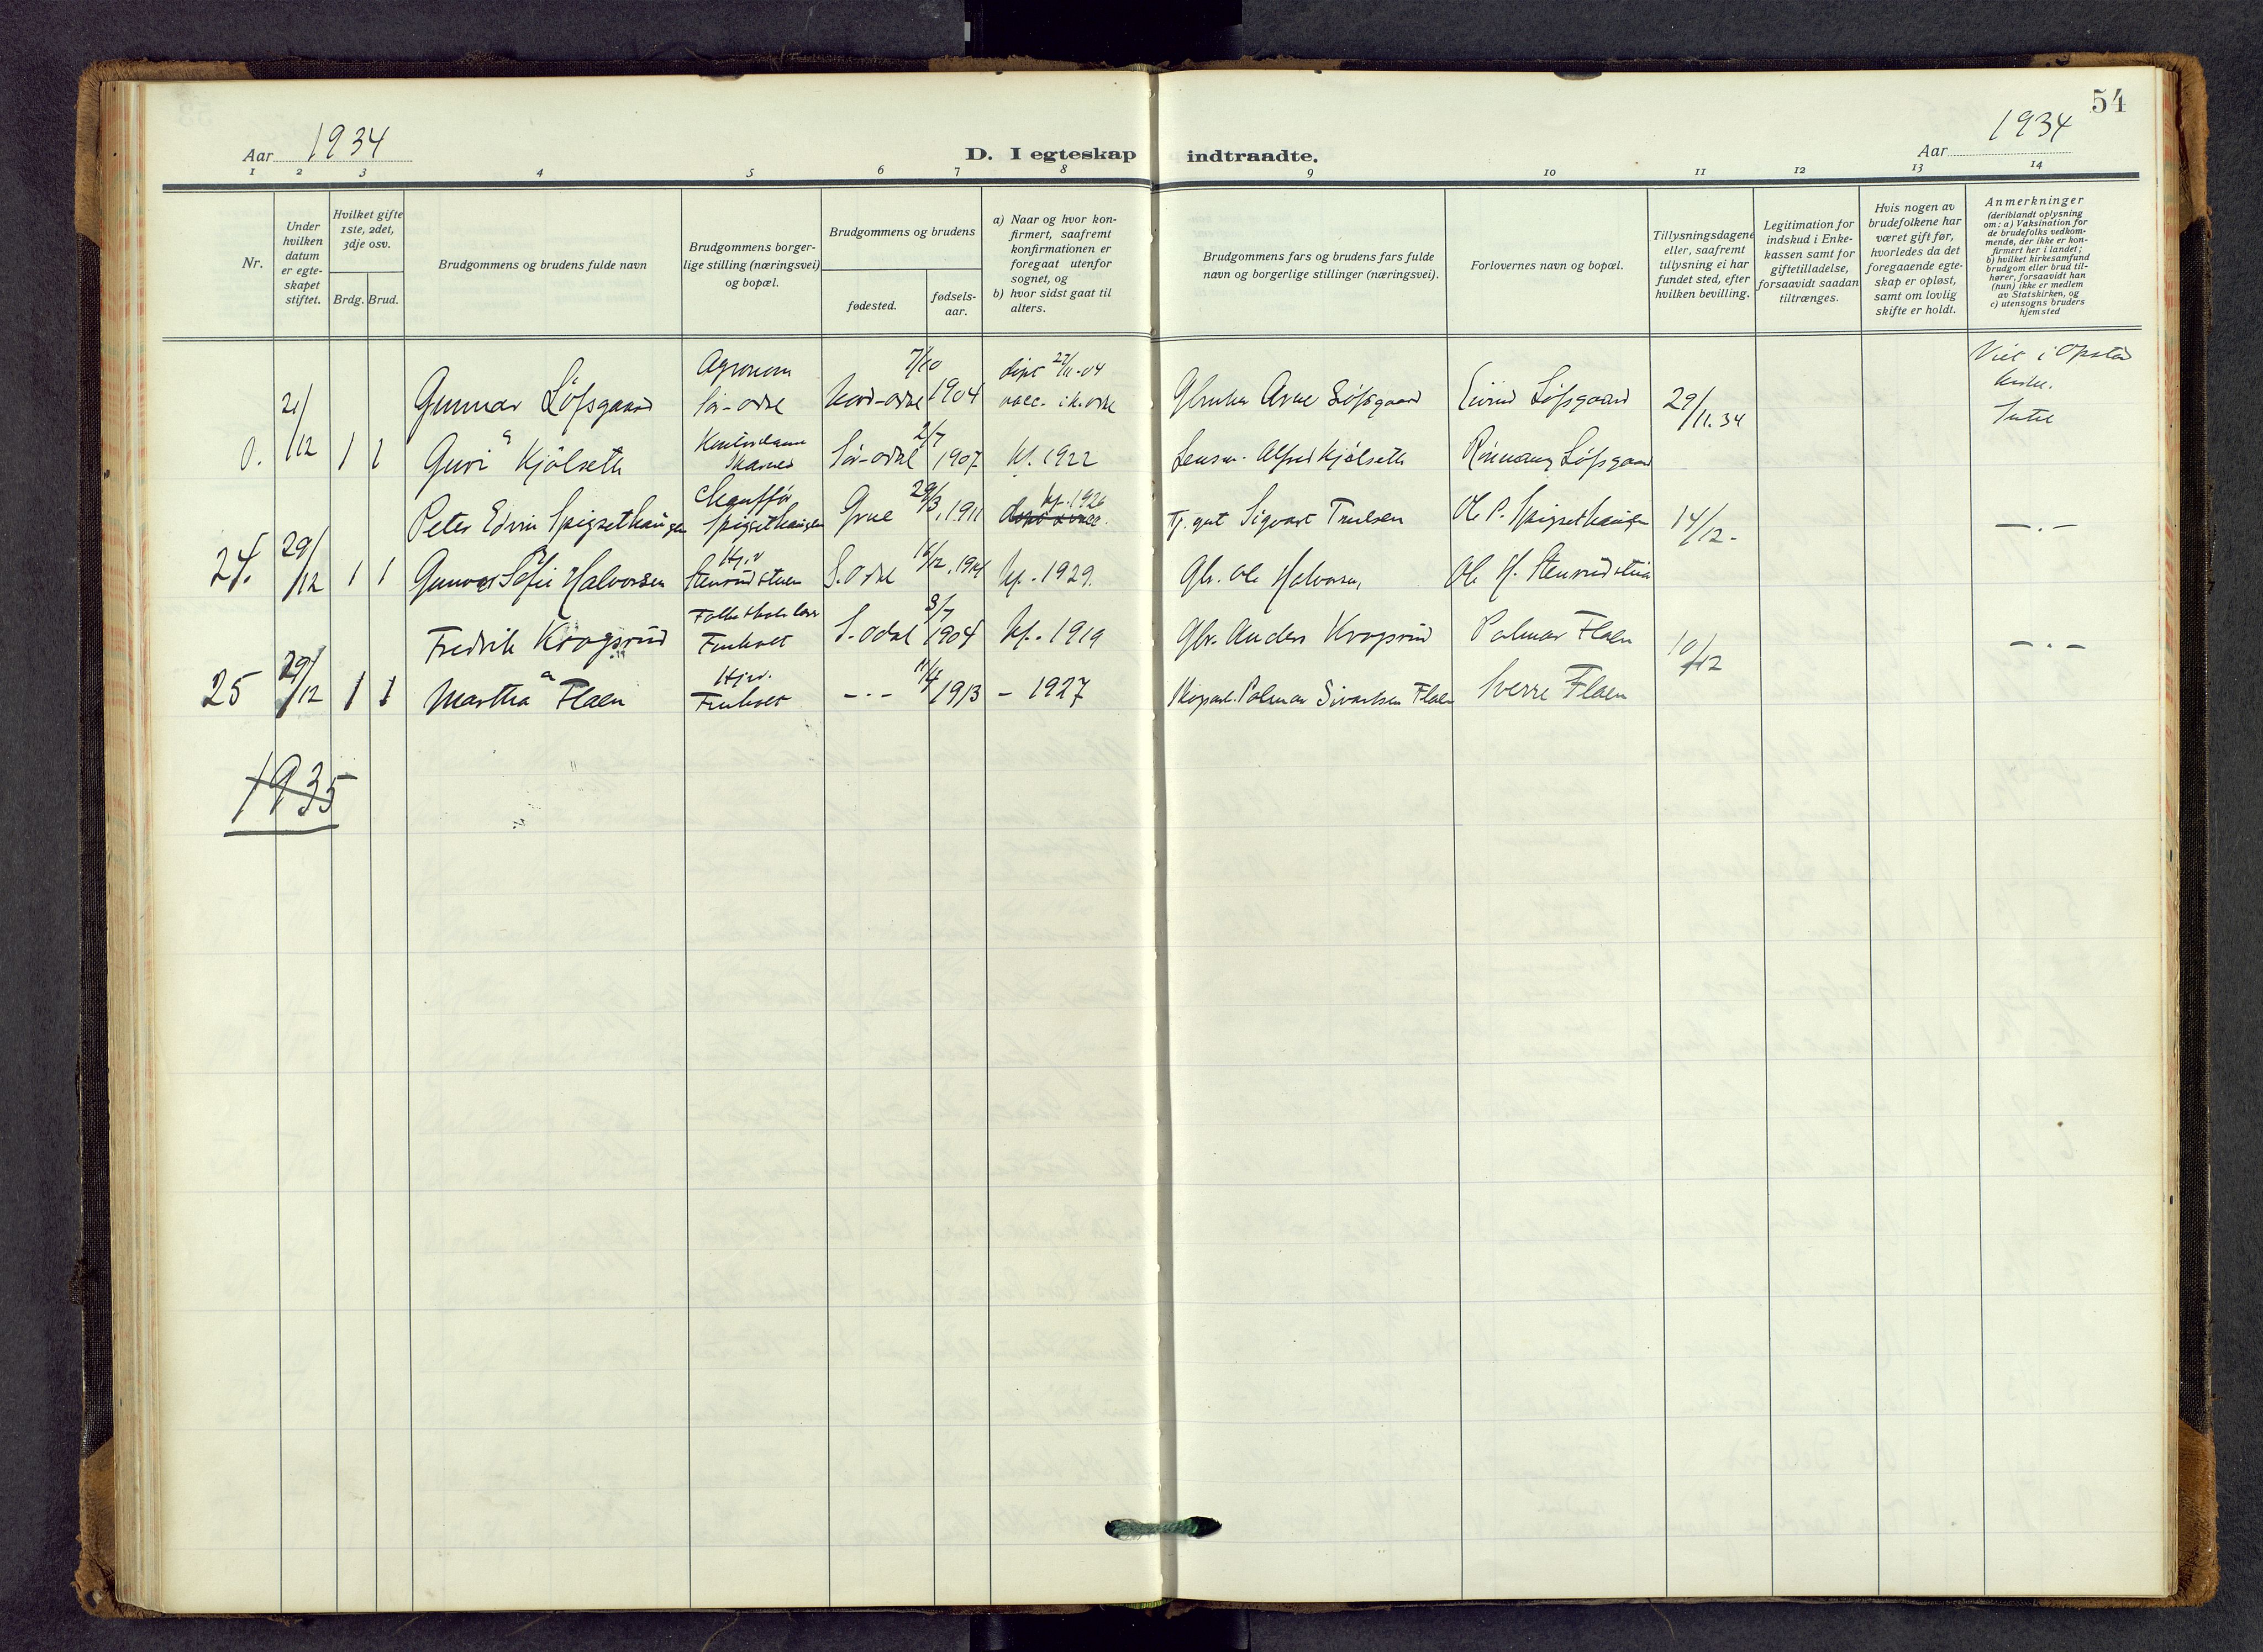 54
Aar 1934
D. I egteskap indtraadte.
Aar 1934
1 2 3 4 5 6 7 8 9 10 11 12 13 14
Nr.
Under hvilken datum er egte-skapet stiftet.
Hvilket gifte 1ste, 2det, 3dje osv.
Brdg. Brud.
Brudgommens og brudens fulde navn
Brudgommens borger-
lige stilling (næringsvei)
og bopæl.
Brudgommens og brudens
fødested.
fødsels-
aar.
a) Naar og hvor kon-
firmert, saafremt
konfirmationen er
foregaat utenfor
sognet, og
b) hvor sidst gaat til
alters.
Brudgommens fars og brudens fars fulde
navn og borgerlige stillinger (næringsvei).
Forlovernes navn og bopæl.
Tillysningsdagene
eller, saafremt
tillysning ei har
fundet sted, efter
hvilken bevilling.
Legitimation for
indskud i Enke-
kassen samt for
giftetilladelse,
forsaavidt saadan
tiltrænges.
Hvis nogen av
brudefolkene har
været gift før,
hvorledes da det
foregaaende egte-
skap er opløst,
samt om lovlig
skifte er holdt.
Anmerkninger
(deriblandt oplysning
om: a) Vaksination for
de brudefolks vedkom-
mende, der ikke er kon-
firmert her i landet;
b) hvilket kirkesamfund
brudgom eller brud til-
hører, forsaavidt han
(hun) ikke er medlem
av Statskirken, og
c) utensogns bruders
hjemsted
Agronom 7/10 døpt 27/11-04 Viet i Opstad
21/12 Gunnar Löfsgaard Sör-odal Nord-odal 1904 vacc. i N. odal Gbruker Arne Löfsgaard Eivind Löfsgaard 29/11.34 kirke.
0. 1 1 Guri Kjölseth Skarnes Sör-odal 2/7 1907 kf. 1922 Lensm. Alfred Kjölseth Löfsgaard
Peter Edvin Spigsethaugen Chaufför Spigsethaugen Grue 29/3, 1911 kf. 1926 Tj. gut Sigvart Truelsen Ole P. Spigsethaugen 14/12. -.-
24. 29/12 1 1 Gunvor Sofie Halvorsen Hj.v Stensrudstuen S. Odal 12, 1914 kf. 1929. Gbr. Ole Halvorsen, Ole H. Stensrudstua
Fredrik Krogsrud Fruholt S. odal 3/7 1904 kf. 1919 Gbr. Anders Krogsrud Palmar Flaen 10/12 -.-
25 29/12 1 1 Martha Flaen Hjv. Fruholt -.- 11/4 1913 - 1927 Palmar Sivertsen Flaen Sverre Flaen
1935